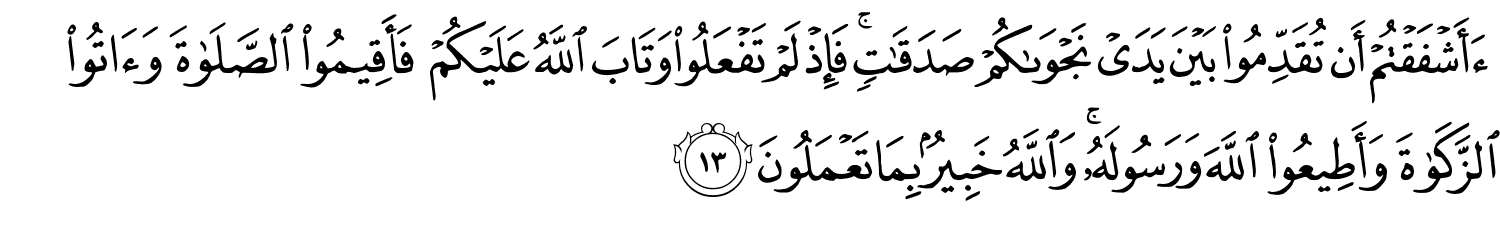 ءَأَشْفَقْتُمْ أَن تُقَدِّمُوا۟ بَيْنَ يَدَىْ نَجْوَىٰكُمْ صَدَقَـٰتٍ ۚ فَإِذْ لَمْ تَفْعَلُوا۟ وَتَابَ ٱللَّهُ عَلَيْكُمْ فَأَقِيمُوا۟ ٱلصَّلَوٰةَ وَءَاتُوا۟
ٱلزَّكَوٰةَ وَأَطِيعُوا۟ ٱللَّهَ وَرَسُولَهُۥ ۚ وَٱللَّهُ خَبِيرٌۢ بِمَا تَعْمَلُونَ ١٣